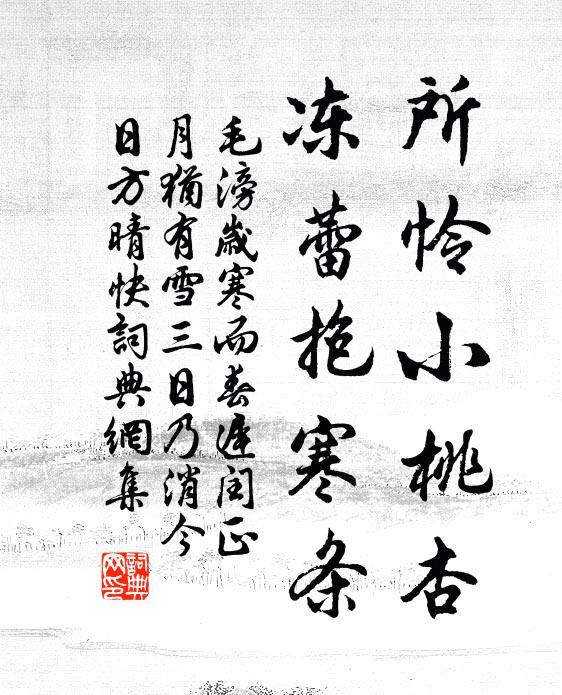 所怜小桃杏
冻蕾抱寒条
毛滂歲寒而春遲閏正
月猶有雪三日乃消今
日方晴快詞典網集
詞典
网印